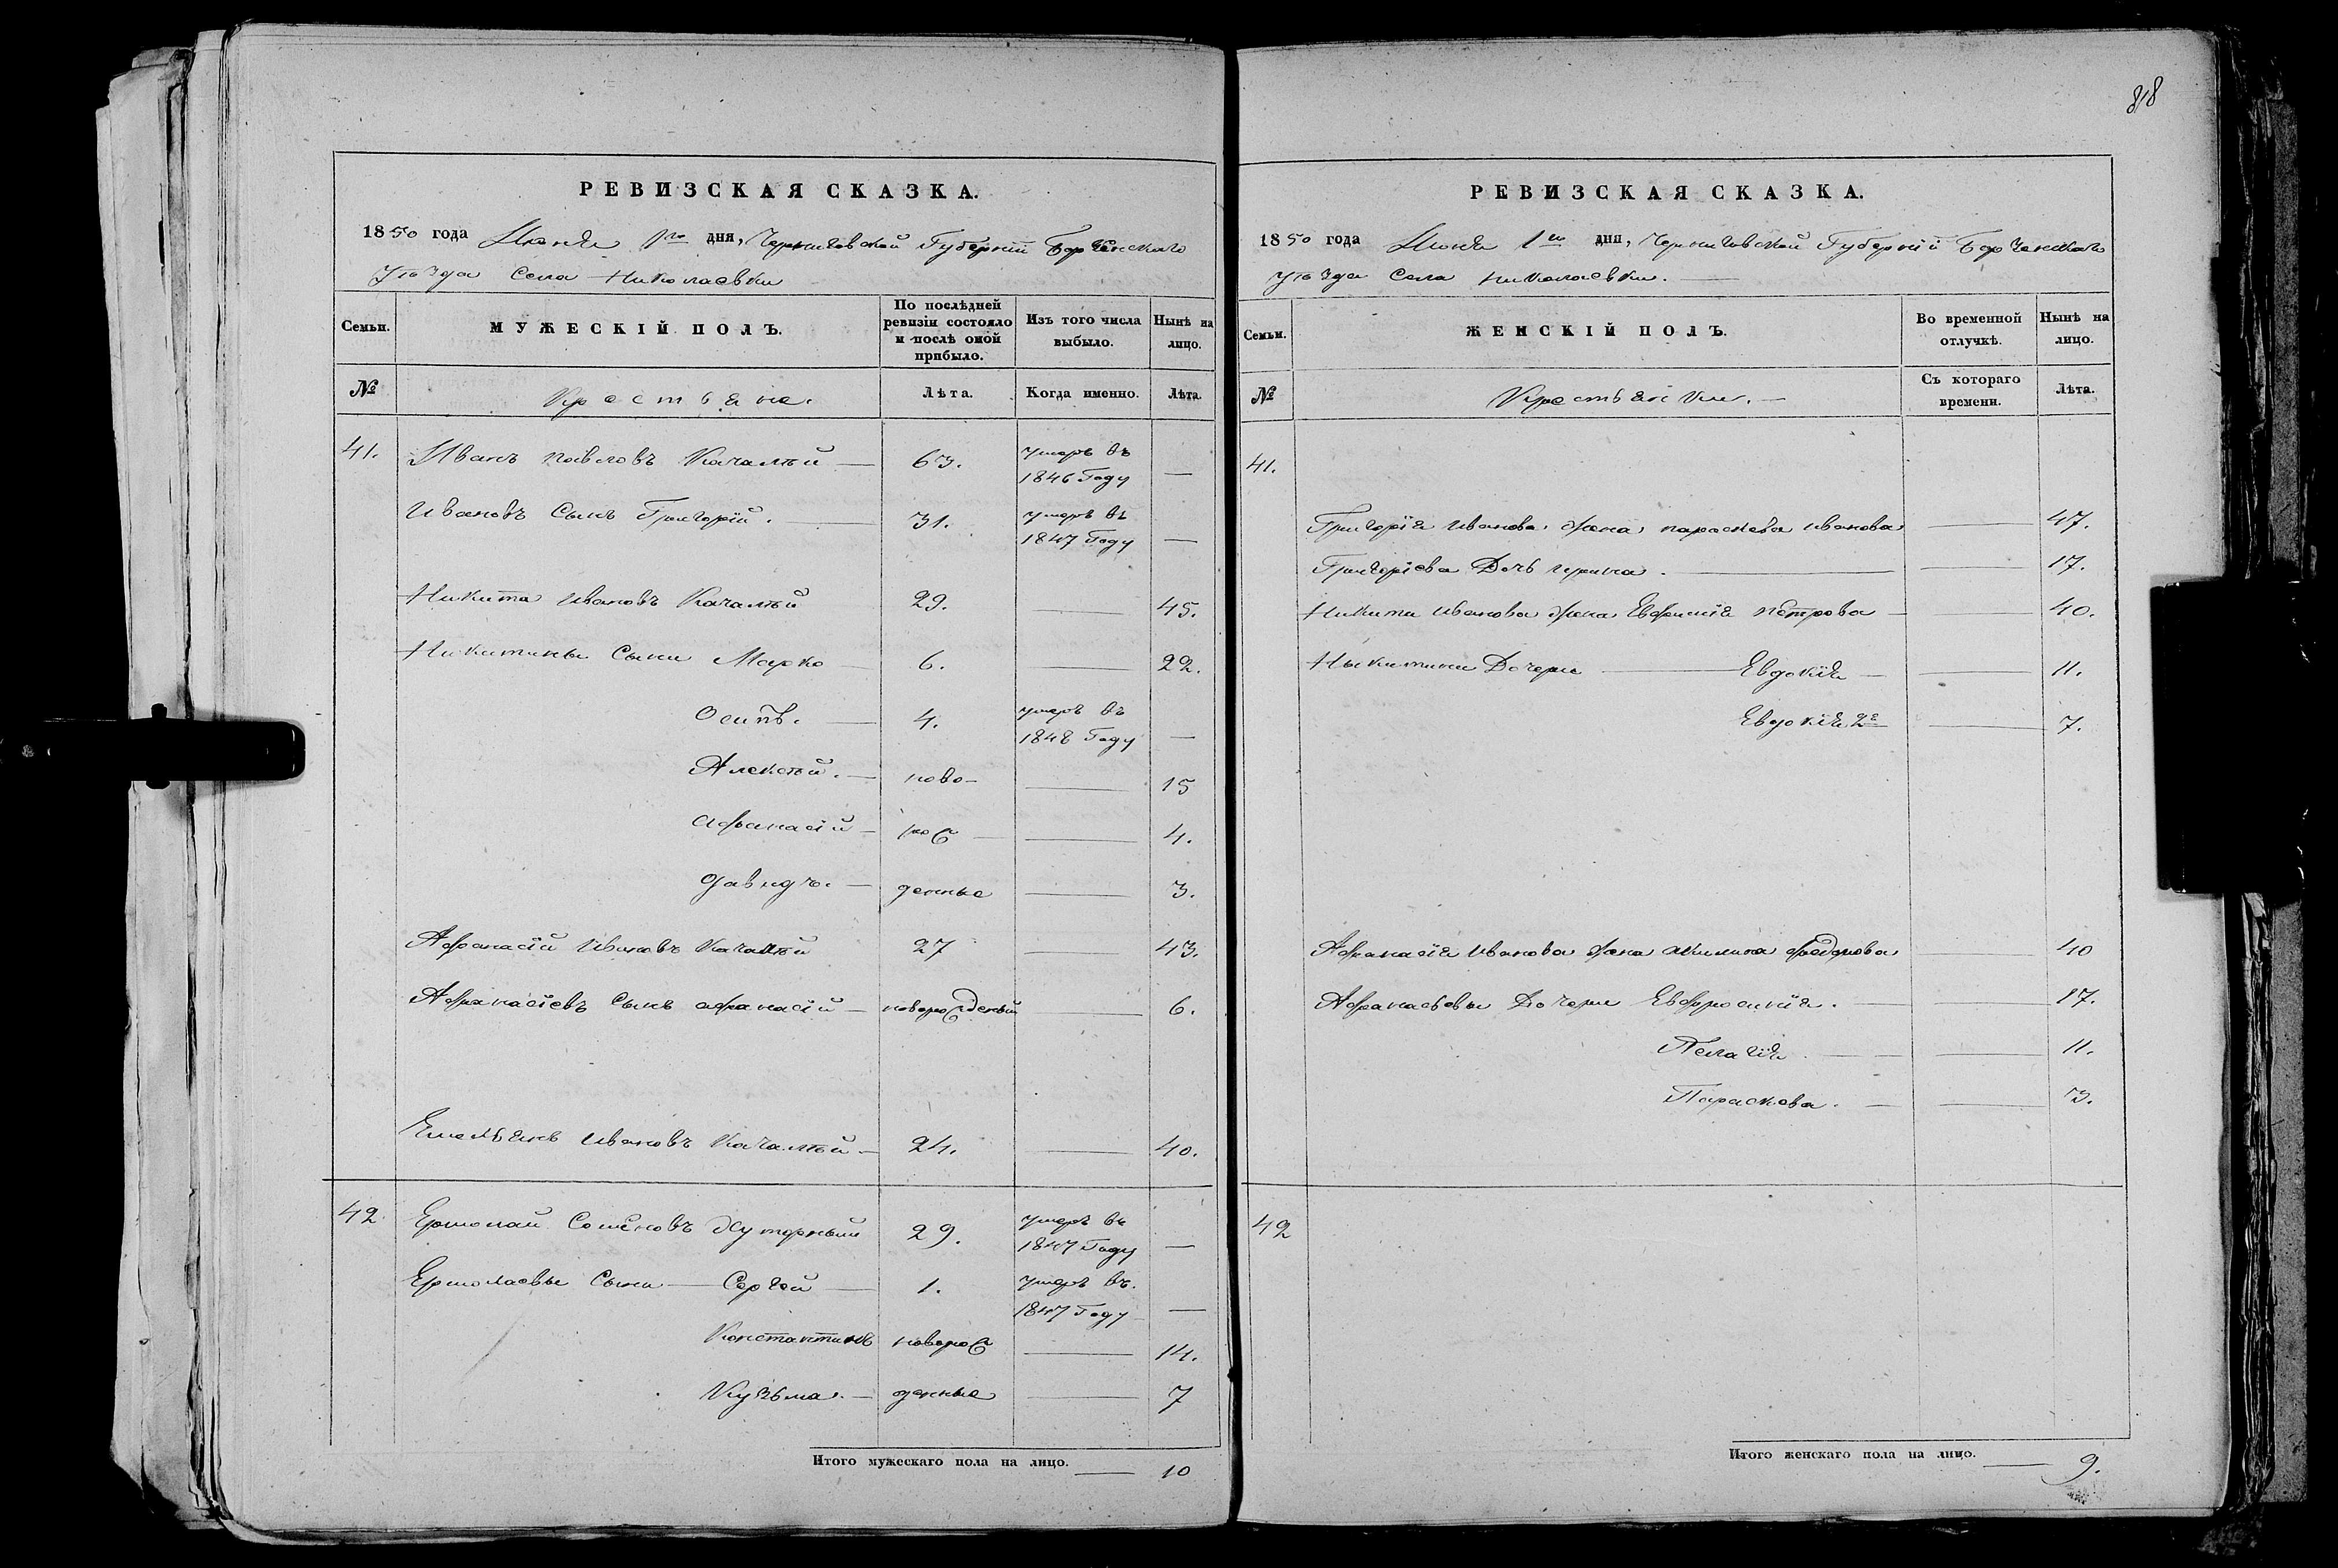 РЕВИЗСКАЯ СКАЗКА.
1850 года Июня 1го дня, Черниговской Губерніи Борзенскаго
уѣзда Села Николаевки
Семьи. МУЖЕСКІЙ ПОЛЪ. По послѣдней ревизіи состояло и послѣ оной прибыло. Изъ того числа выбыло. Нынѣ на лицо.
№ Крестьяне. Лѣта. Когда именно. Лѣта.
41. Иванъ Павловъ Качалъй — 63. умеръ въ 1846 Году —
Ивановъ Сынъ Григорій. — 31. умеръ въ 1847 Году —
Никита Ивановъ Качалъй 29. — 45.
Никитины Сыни Марко — 6. — 22.
Осипъ. — 4. умеръ въ 1848 Году —
Алексѣй. — ново- — 15
Афанасій — рож — 4.
Давидъ. — денные — 3.
Афанасій Ивановъ Качалъй 27 — 43.
Афанасіевъ Сынъ Афанасій — новорожденый — 6.
Емельянъ Ивановъ Качалъй — 24. — 40.
42 Ермолай Семёновъ Хуторный 29. умеръ въ 1847 Году —
Ермолаевы Сыни — Сергей — 1. умеръ въ. 1847 Году —
Константинъ новорож — 14.
Кузьма. — денные — 7
Итого мужескаго пола на лицо. — 10
818
РЕВИЗСКАЯ СКАЗКА.
1850 года Июня 1го дня, Черниговской Губерніи Борзенскаго
уѣзда Села Николаевки. —
Семьи. ЖЕНСКІЙ ПОЛЪ. Во временной отлучкѣ. Нынѣ на лицо.
№ Крестьянки. — Съ котораго времени. Лѣта.
41.
Григорія Иванова жена Параскева Иванова — 47.
Григоріева Дочь Ирина. — 17.
Никити Иванова жена Евфимія Петрова — 40.
Никитини Дочери — Евдокія — 11.
Евдокія 2я — 7.
Афанасія Иванова жена Акилина Федорова — 40
Афанасьевы Дочери Евфросинія. — 17.
Пелагія. — 11.
Параскева. — 3.
42
Итого женскаго пола на лицо. — 9.